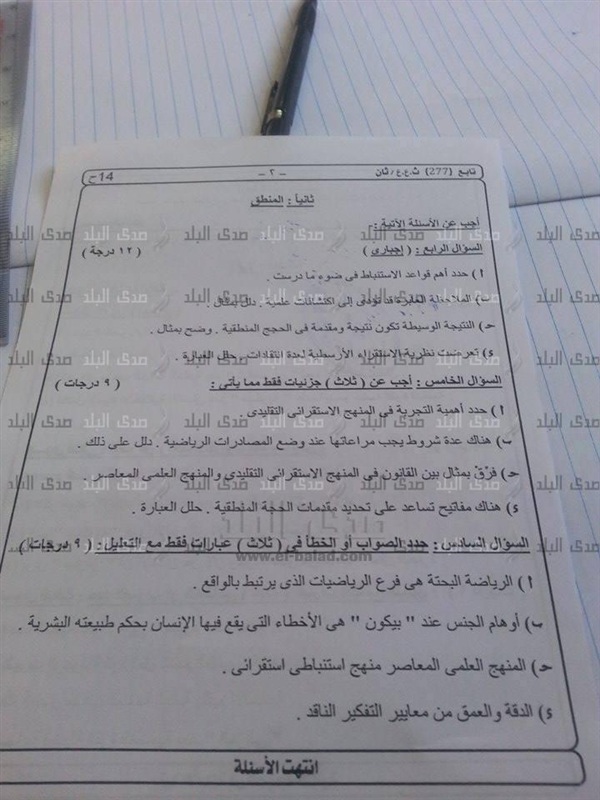 تابع (277) ث.ع.ع/ثان
- ٢ -
14ح
ثانياً : المنطق
أجب عن الأسئلة الآتية :
السؤال الرابع : ( إجبارى ) ( ١٢ درجة )
أ ) حدد أهم قواعد الاستنباط فى ضوء ما درست .
ب) الملاحظة العابرة قد تؤدى إلى اكتشافات علمية . دلل بمثال .
حـ) النتيجة الوسيطة تكون نتيجة ومقدمة فى الحجج المنطقية . وضح بمثال .
ء) تعرضت نظرية الاستقراء الأرسطية لعدة انتقادات . حلل العبارة .
السؤال الخامس : أجب عن ( ثلاث ) جزئيات فقط مما يأتى : ( ٩ درجات )
أ ) حدد أهمية التجربة فى المنهج الاستقرائى التقليدى .
ب) هناك عدة شروط يجب مراعاتها عند وضع المصادرات الرياضية . دلل على ذلك .
حـ) فرّق بمثال بين القانون فى المنهج الاستقرائى التقليدى والمنهج العلمى المعاصر .
ء) هناك مفاتيح تساعد على تحديد مقدمات الحجة المنطقية . حلل العبارة .
السؤال السادس : حدد الصواب أو الخطأ فى ( ثلاث ) عبارات فقط مع التعليل : ( ٩ درجات )
أ ) الرياضة البحتة هى فرع الرياضيات الذى يرتبط بالواقع .
ب) أوهام الجنس عند " بيكون " هى الأخطاء التى يقع فيها الإنسان بحكم طبيعته البشرية .
حـ) المنهج العلمى المعاصر منهج استنباطى استقرائى .
ء) الدقة والعمق من معايير التفكير الناقد .
انتهت الأسئلة
صدى البلد
www.el-balad.com